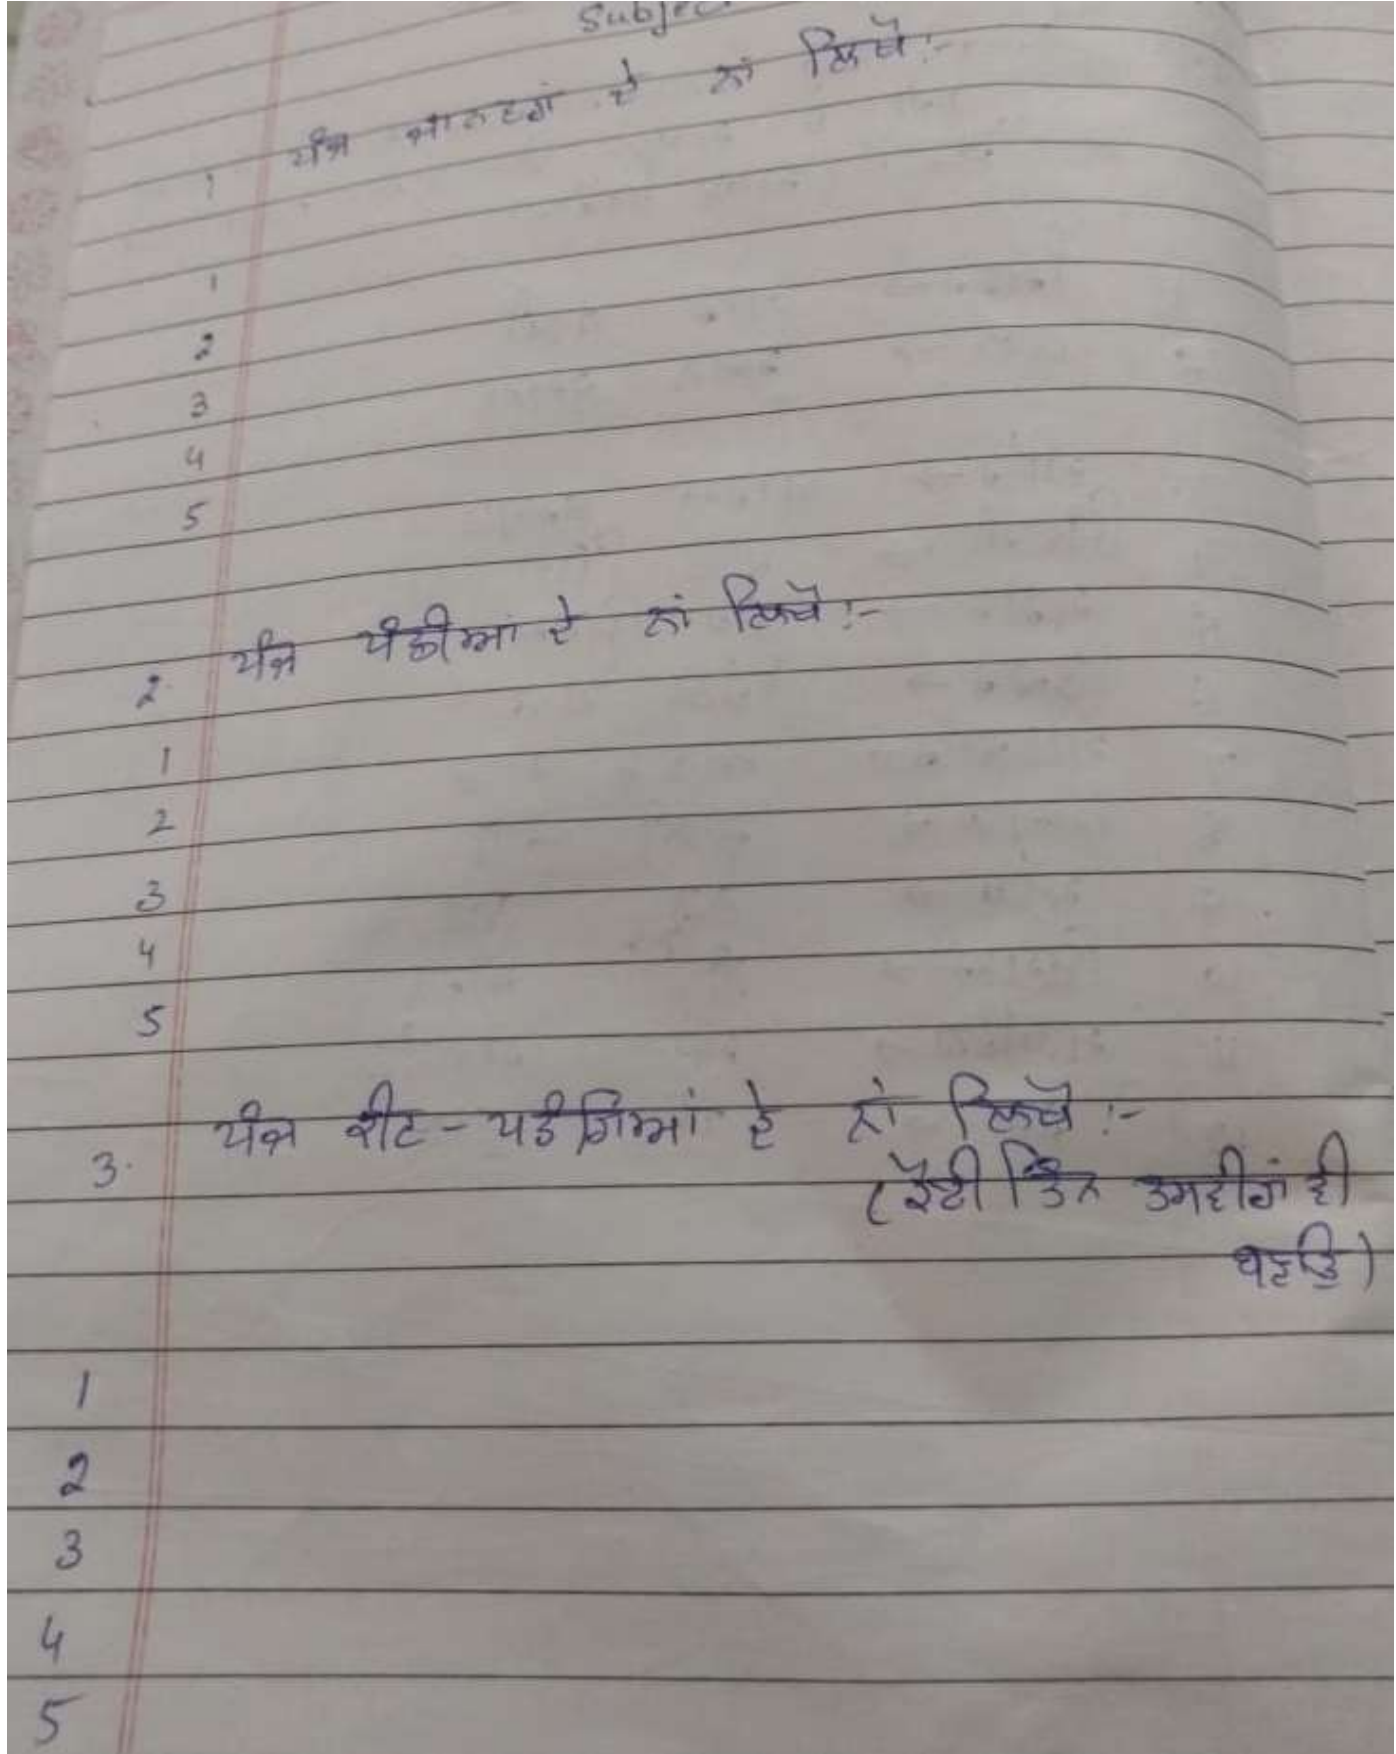 Subjec
1 ਪੰਜ ਜਾਨਵਰਾਂ ਦੇ ਨਾਂ ਲਿਖੋ :-
1
2
3
4
5
2. ਪੰਜ ਪੰਛੀਆਂ ਦੇ ਨਾਂ ਲਿਖੋ :-
1
2
3
4
5
3. ਪੰਜ ਕੀਟ - ਪਤੰਗਿਆਂ ਦੇ ਨਾਂ ਲਿਖੋ :-
( ਕੋਈ ਤਿੰਨ ਤਸਵੀਰਾਂ ਵੀ
ਬਣਾਉ )
1
2
3
4
5